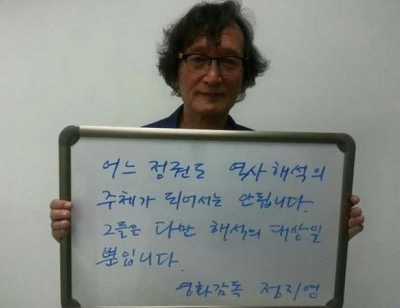 어느 정권도 역사해석의
주체가 되어서는 안됩니다.
그들은 다만 해석의 대상일
뿐입니다.
영화감독 정지영